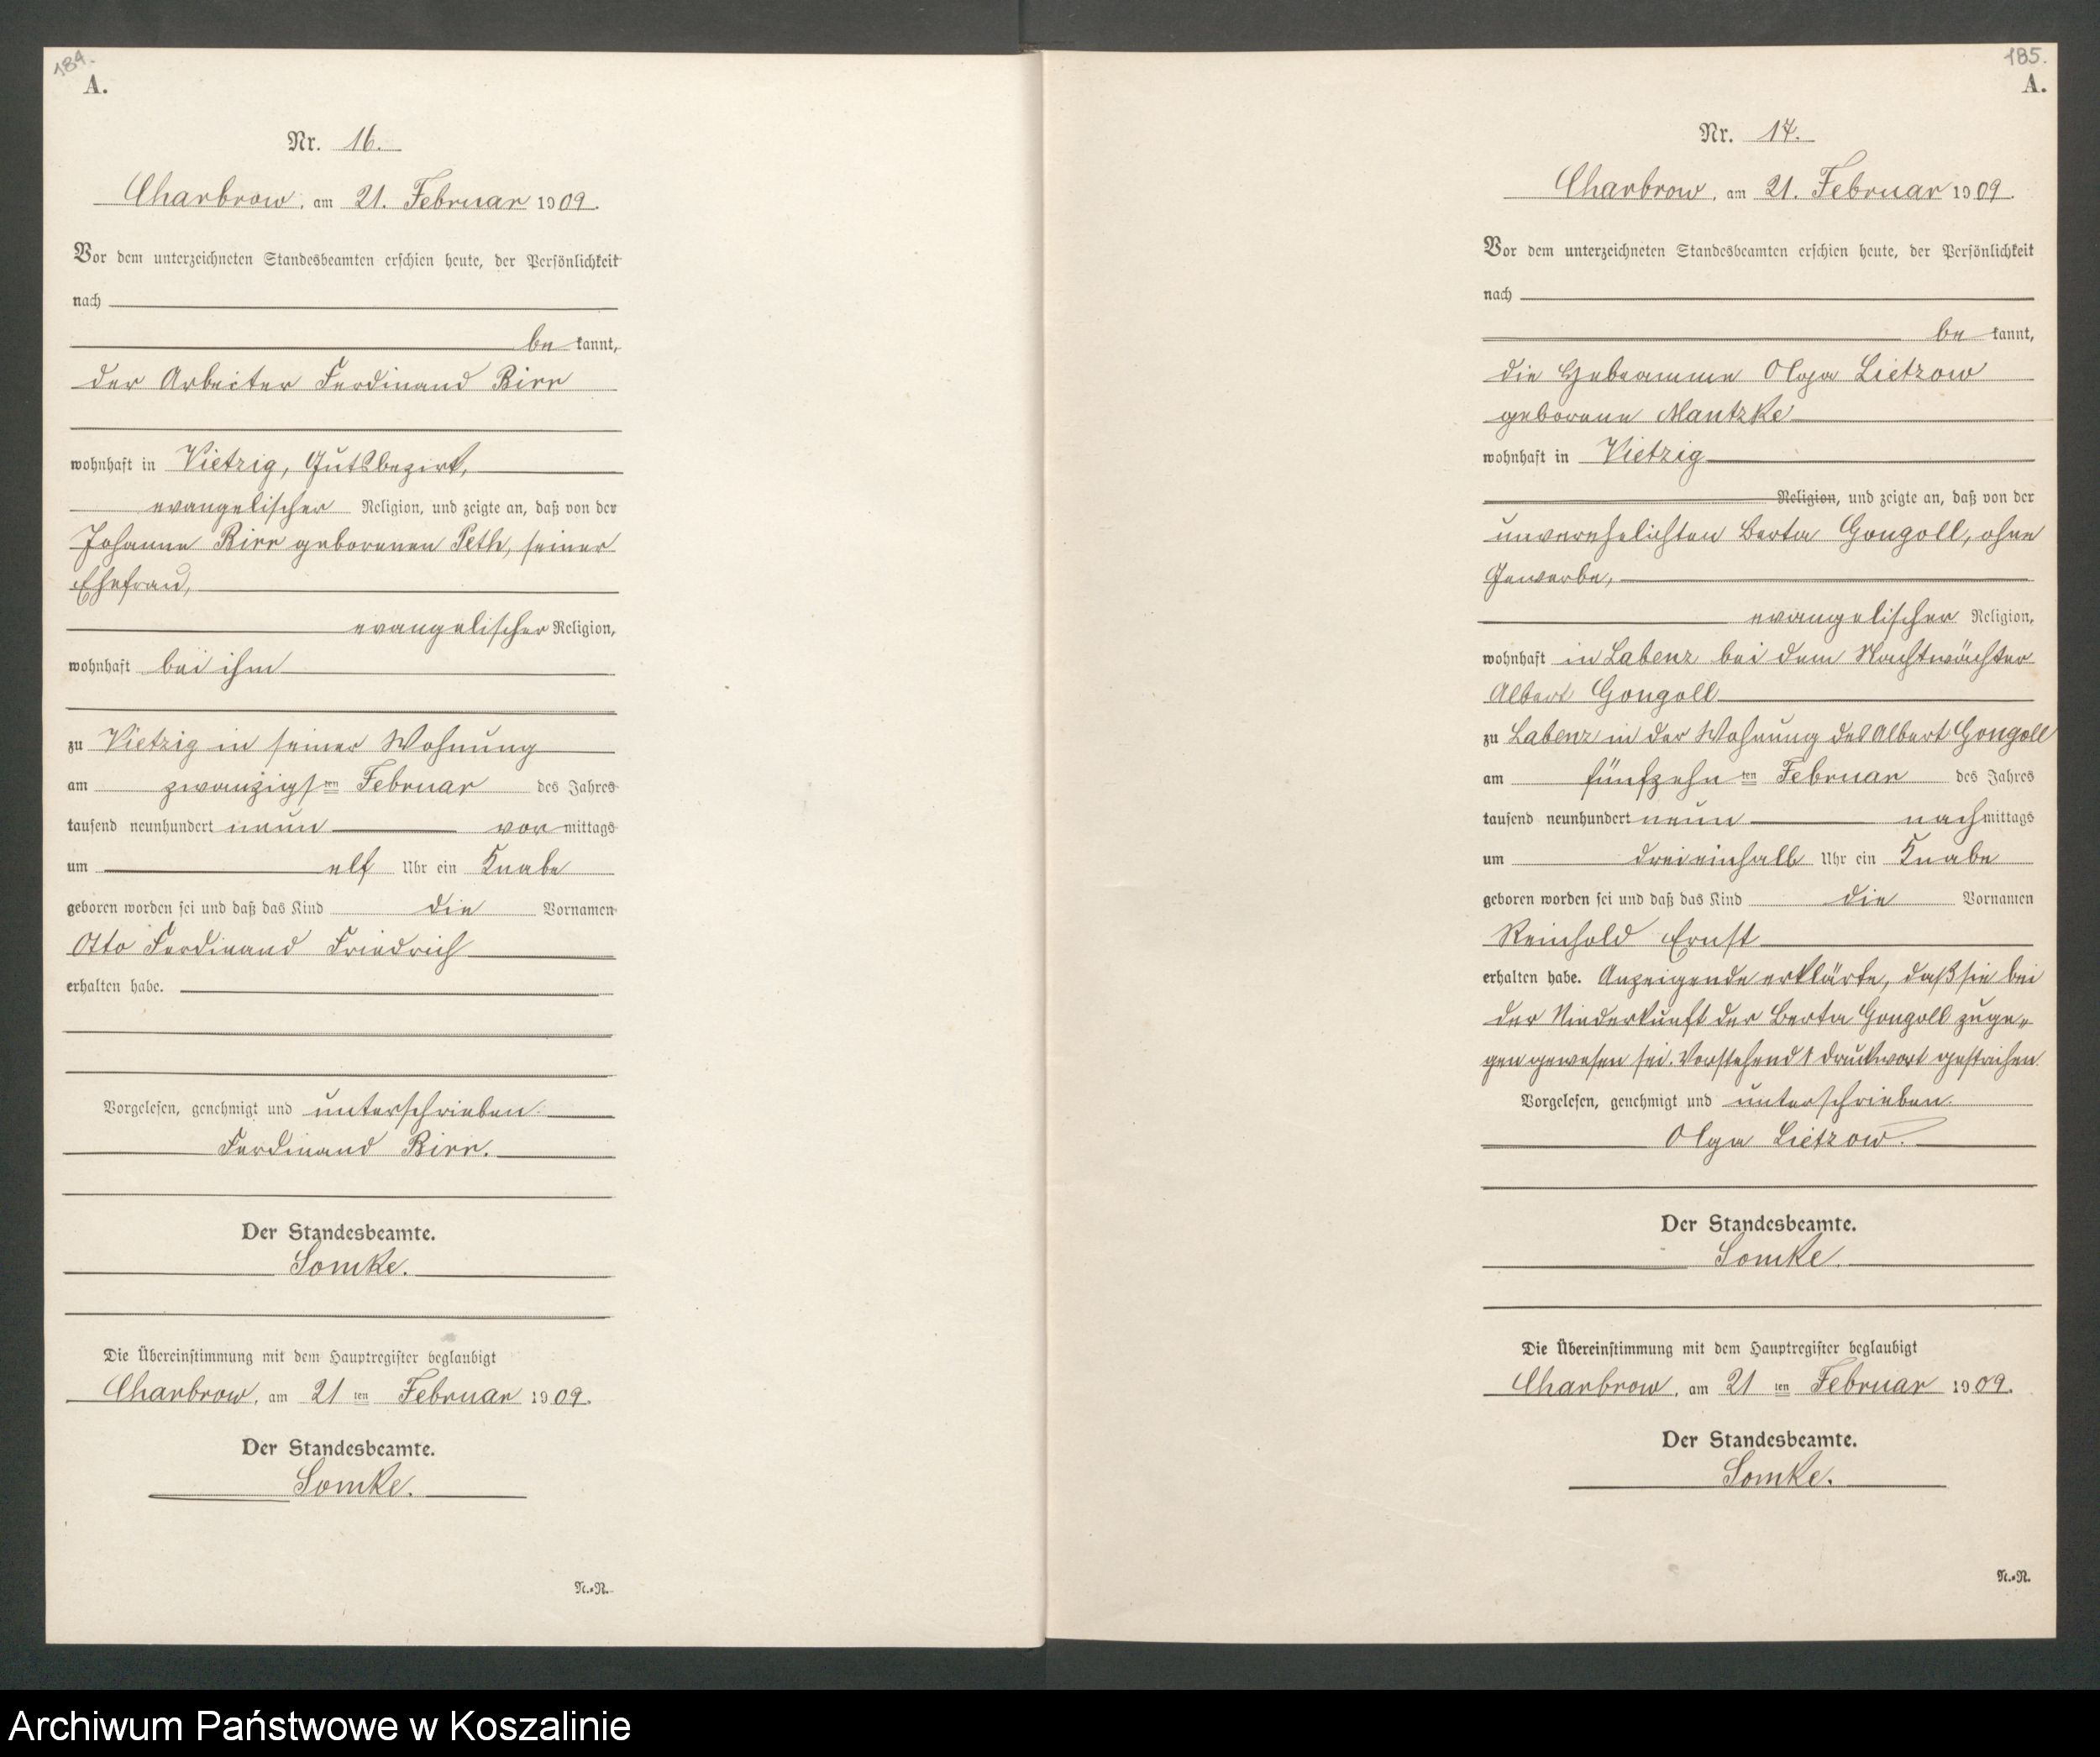 184.
A.
Nr. 16.
Charbrow, am 21. Februar 1909.
Vor dem unterzeichneten Standesbeamten erschien heute, der Persönlichkeit
nach
be kannt,
der Arbeiter Ferdinand Birr
wohnhaft in Vietzig, Gutsbezirk,
evangelischer Religion, und zeigte an, daß von der
Johanne Birr geborenen Peth, seiner
Ehefrau,
evangelischer Religion,
wohnhaft bei ihm
zu Vietzig in seiner Wohnung
am zwanzigsten Februar des Jahres
tausend neunhundert neun vor mittags
um elf Uhr ein Knabe
geboren worden sei und daß das Kind die Vornamen
Otto Ferdinand Friedrich
erhalten habe.
Vorgelesen, genehmigt und unterschrieben.
Ferdinand Birr.
Der Standesbeamte.
Somke.
Die Übereinstimmung mit dem Hauptregister beglaubigt
Charbrow, am 21 ten Februar 1909.
Der Standesbeamte.
Somke.
N.=N.
185.
A.
Nr. 17.
Charbrow, am 21. Februar 1909.
Vor dem unterzeichneten Standesbeamten erschien heute, der Persönlichkeit
nach
be kannt,
die Hebeamme Olga Lietzow
geborene Mantzke
wohnhaft in Vietzig
Religion, und zeigte an, daß von der
unverehelichten Berta Gongoll, ohne
Gewerbe,
evangelischer Religion,
wohnhaft in Labenz bei dem Nachtwächter
Albert Gongoll
zu Labenz in der Wohnung des Albert Gongoll
am fünfzehn ten Februar des Jahres
tausend neunhundert neun nach mittags
um dreieinhalb Uhr ein Knabe
geboren worden sei und daß das Kind die Vornamen
Reinhold Ernst
erhalten habe. Anzeigende erklärte, daß sie bei
der Niederkunft der Berta Gongoll zuge„
gen gewesen sei. Vorstehend 1 Druckwort gestrichen.
Vorgelesen, genehmigt und unterschrieben.
Olga Lietzow.
Der Standesbeamte.
Somke.
Die Übereinstimmung mit dem Hauptregister beglaubigt
Charbrow, am 21 ten Februar 1909.
Der Standesbeamte.
Somke.
N.=N.
Archiwum Państwowe w Koszalinie